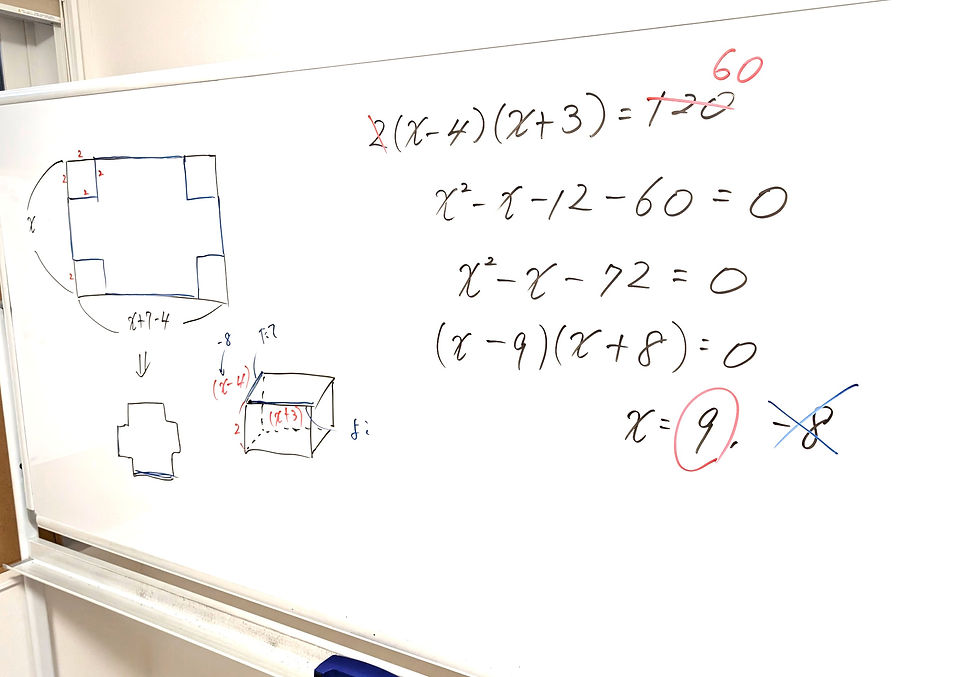 60
2(x-4)(x+3)=120
x²-x-12-60=0
x²-x-72=0
(x-9)(x+8)=0
x=9, -8
2
2
2
2
x
2
x+7-4
-8
(x-4)
(x+3)
2